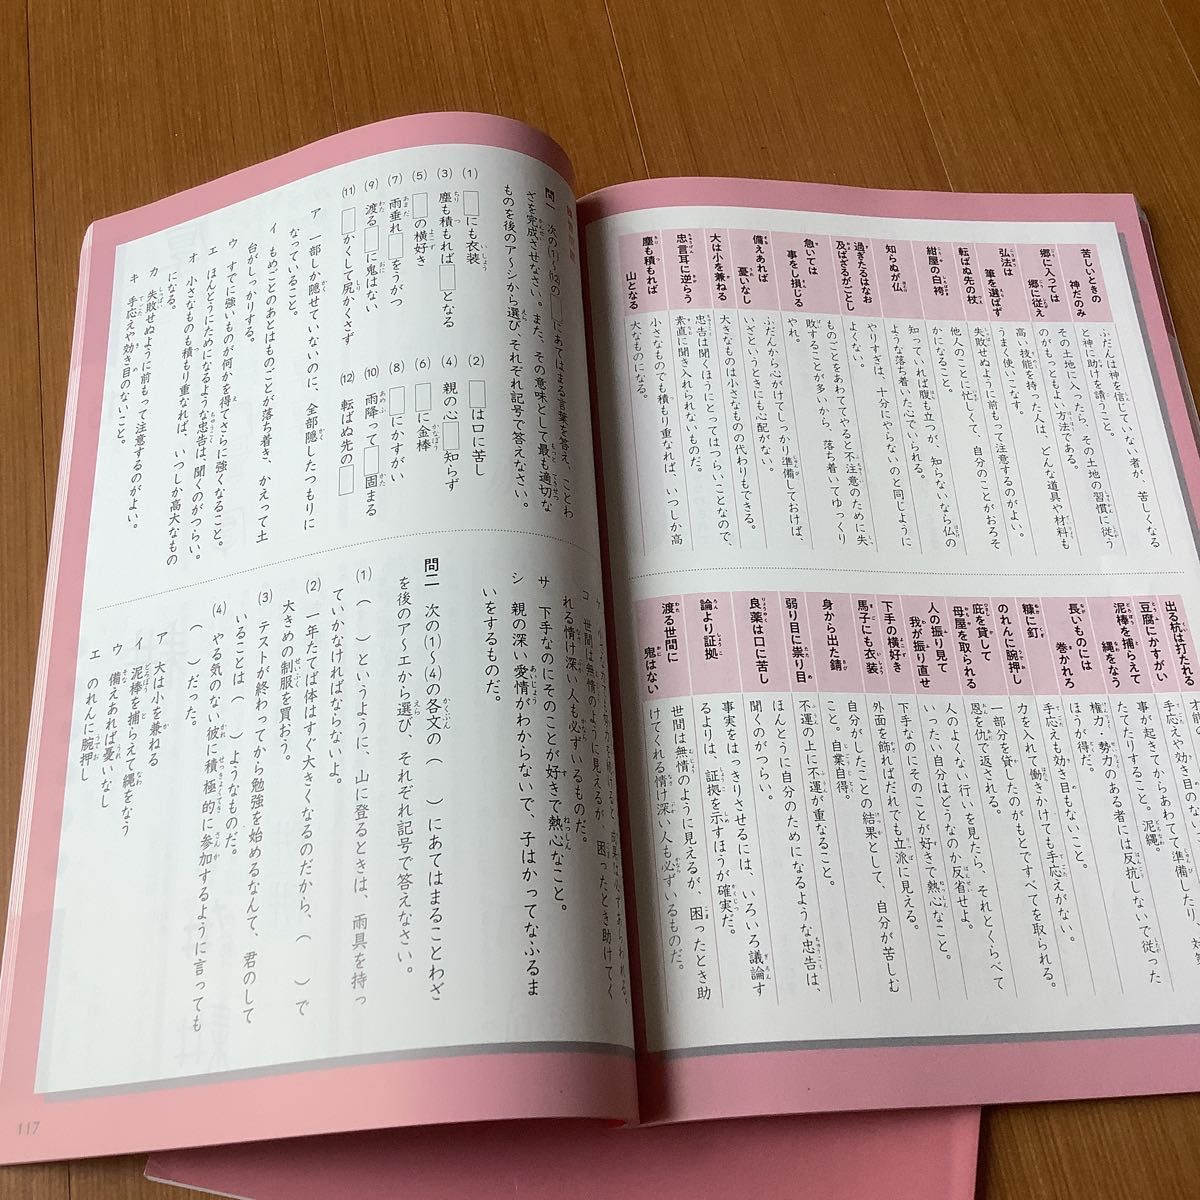 苦しいときの
神だのみ
ふだんは神を信じていない者が、苦しくなる
と神に助けを請うこと。
郷に入っては
郷に従え
その土地に入ったら、その土地の習慣に従う
のがもっともよい方法である。
弘法は
筆を選ばず
高い技能を持った人は、どんな道具や材料も
うまく使いこなす。
転ばぬ先の杖
失敗せぬように前もって注意するのがよい。
紺屋の白袴
他人のことに忙しくて、自分のことがおろそ
かになること。
知らぬが仏
知っていれば腹も立つが、知らないなら仏の
ような落ち着いた心でいられる。
過ぎたるはなお
及ばざるがごとし
やりすぎは、十分にやらないのと同じように
よくない。
急いては
事をし損じる
ものごとをあわててやると不注意のために失
敗することが多いから、落ち着いてゆっくり
やれ。
備えあれば
憂いなし
ふだんから心がけてしっかり準備しておけば、
いざというときにも心配がない。
大は小を兼ねる
大きなものは小さなものの代わりもできる。
忠言耳に逆らう
忠告は聞くほうにとってはつらいことなので、
素直に聞き入れられないものだ。
塵も積もれば
山となる
小さなものでも積もり重なれば、いつしか高
大なものになる。
出る杭は打たれる
豆腐にかすがい
手応えや効き目のないこと。
泥棒を捕らえて
縄をなう
事が起きてからあわてて準備したり、対策
たてたりすること。泥縄。
長いものには
巻かれろ
権力、勢力のある者には反抗しないで従った
ほうが得だ。
糠に釘
手応えも効き目もないこと。
のれんに腕押し
力を入れて働きかけても手応えがない。
庇を貸して
母屋を取られる
一部分を貸したのがもとですべてを取られる。
恩を仇で返される。
人の振り見て
我が振り直せ
人のよくない行いを見たら、それとくらべて
いったい自分はどうなのか反省せよ。
下手の横好き
下手なのにそのことが好きで熱心なこと。
馬子にも衣装
外面を飾ればだれでも立派に見える。
身から出た錆
自分がしたことの結果として、自分が苦しむ
こと。自業自得。
弱り目に祟り目
不運の上に不運が重なること。
良薬は口に苦し
ほんとうに自分のためになるような忠告は、
聞くのがつらい。
論より証拠
事実をはっきりさせるには、いろいろ議論す
るよりは、証拠を示すほうが確実だ。
渡る世間に
鬼はない
世間は無情のように見えるが、困ったとき助
けてくれる情け深い人も必ずいるものだ。
問一 次の(1)〜(12)の□にあてはまる言葉を答え、ことわ
ざを完成させなさい。また、その意味として最も適切な
ものを後のア〜シから選び、それぞれ記号で答えなさい。
(1) □にも衣装
(2) □は口に苦し
(3) 塵も積もれば□となる
(4) 親の心□知らず
(5) □の横好き
(6) □に金棒
(7) 雨垂れ□をうがつ
(8) □にかすがい
(9) 渡る□に鬼はない
(10) 雨降って□固まる
(11) □かくして尻かくさず
(12) 転ばぬ先の□
ア 一部しか隠せていないのに、全部隠したつもりに
なっていること。
イ もめごとのあとはものごとが落ち着き、かえって土
台がしっかりする。
ウ すでに強いものが何かを得てさらに強くなること。
エ ほんとうにためになるような忠告は、聞くのがつらい。
オ 小さなものも積もり重なれば、いつしか高大なもの
になる。
カ 失敗せぬように前もって注意するのがよい。
キ 手応えや効き目のないこと。
コ 世間は無情のように見えるが、困ったとき助けてく
れる情け深い人も必ずいるものだ。
サ 下手なのにそのことが好きで熱心なこと。
シ 親の深い愛情がわからないで、子はかってなふるま
いをするものだ。
問二 次の(1)〜(4)の各文の( )にあてはまることわざ
を後のア〜エから選び、それぞれ記号で答えなさい。
(1) ( )というように、山に登るときは、雨具を持っ
ていかなければならないよ。
(2) 一年たてば体はすぐ大きくなるのだから、( )で
大きめの制服を買おう。
(3) テストが終わってから勉強を始めるなんて、君のして
いることは( )ようなものだ。
(4) やる気のない彼に積極的に参加するように言っても
( )だった。
ア 大は小を兼ねる
イ 泥棒を捕らえて縄をなう
ウ 備えあれば憂いなし
エ のれんに腕押し
117